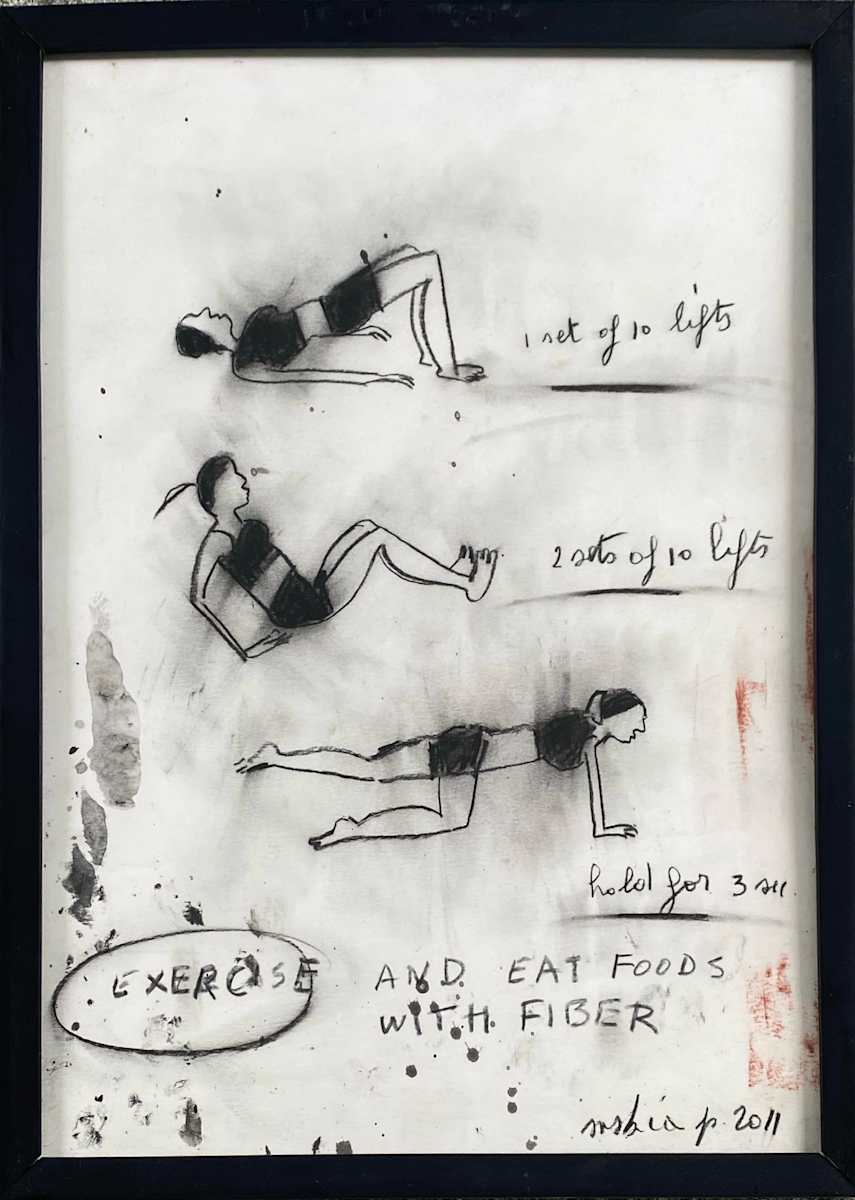 1 set of 10 lifts
2 sets of 10 lifts
hold for 3 sec.
EXERCISE AND EAT FOODS
WITH FIBER
p. 2011